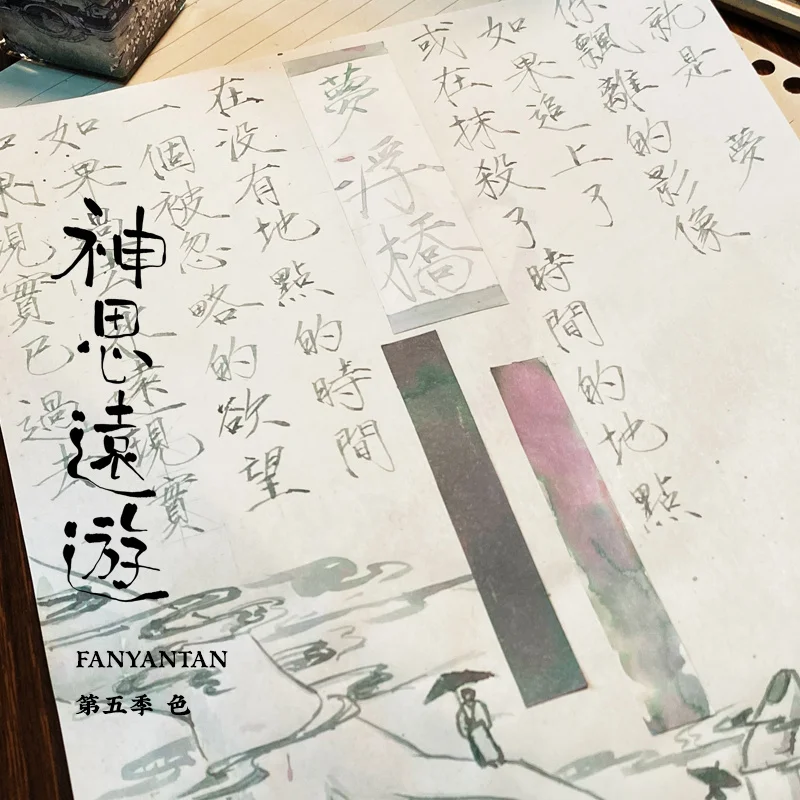 就是 夢
你飄離的影像
如果追上了
或在抹殺了時間的地點
夢浮橋
在沒有地點的時間
一個被忽略的欲望
如果
遠現實
如果現實已過去
神思遠遊
FANYANTAN
第五季 色